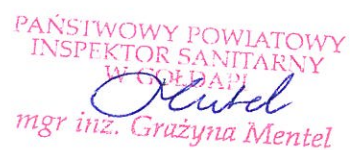 PAŃSTWOWY POWIATOWY
INSPEKTOR SANITARNY
W GOŁDAPI
Mentel
mgr inż. Grażyna Mentel